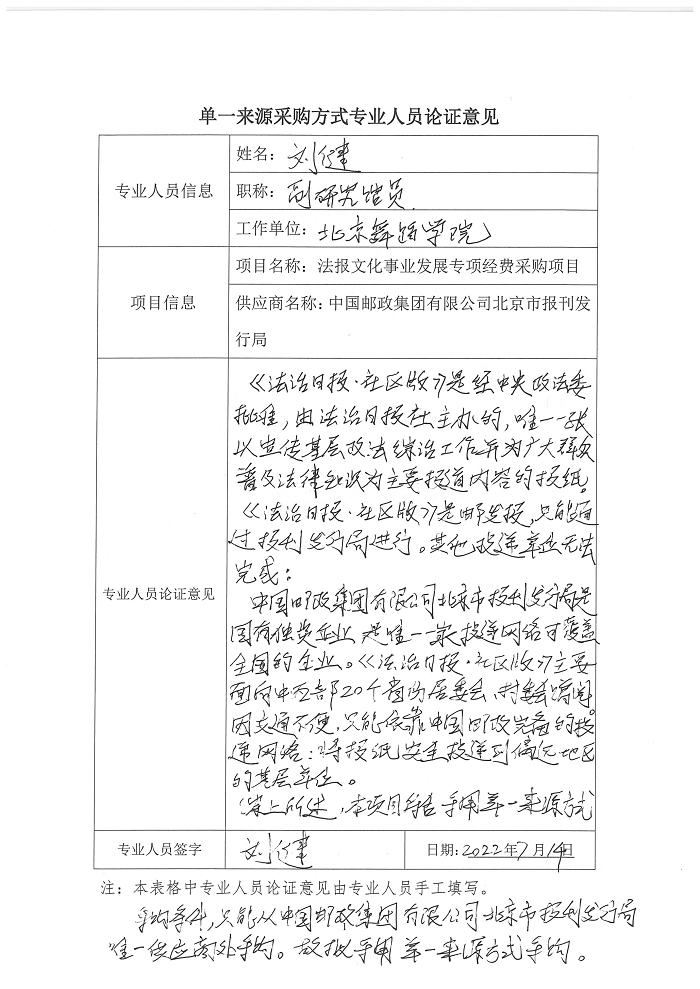 单一来源采购方式专业人员论证意见
专业人员信息
姓名：刘健
职称：副研究馆员
工作单位：北京舞蹈学院
项目信息
项目名称：法报文化事业发展专项经费采购项目
供应商名称：中国邮政集团有限公司北京市报刊发
行局
专业人员论证意见
《法治日报·社区版》是经中央政法委
批准，由法治日报社主办的，唯一一张
以宣传基层政法综治工作并为广大群众
普及法律知识为主要报道内容的报纸。
《法治日报·社区版》是邮发报，只能通
过报刊发行局进行。其他投递单位无法
完成：
中国邮政集团有限公司北京市报刊发行局是
国有独资企业 是唯一一家投递网络可覆盖
全国的企业。《法治日报·社区版》主要
面向中西部20个省的居委会、村委会赠阅
因交通不便，只能依靠中国邮政完备的投
递网络：将报纸安全投递到偏远地区
的基层单位。
综上所述，本项目符合采用单一来源方式
专业人员签字
刘健
日期：2022年7月14日
注：本表格中专业人员论证意见由专业人员手工填写。
采购条件，只能从中国邮政集团有限公司北京市报刊发行局
唯一供应商处采购。故拟采用单一来源方式采购。